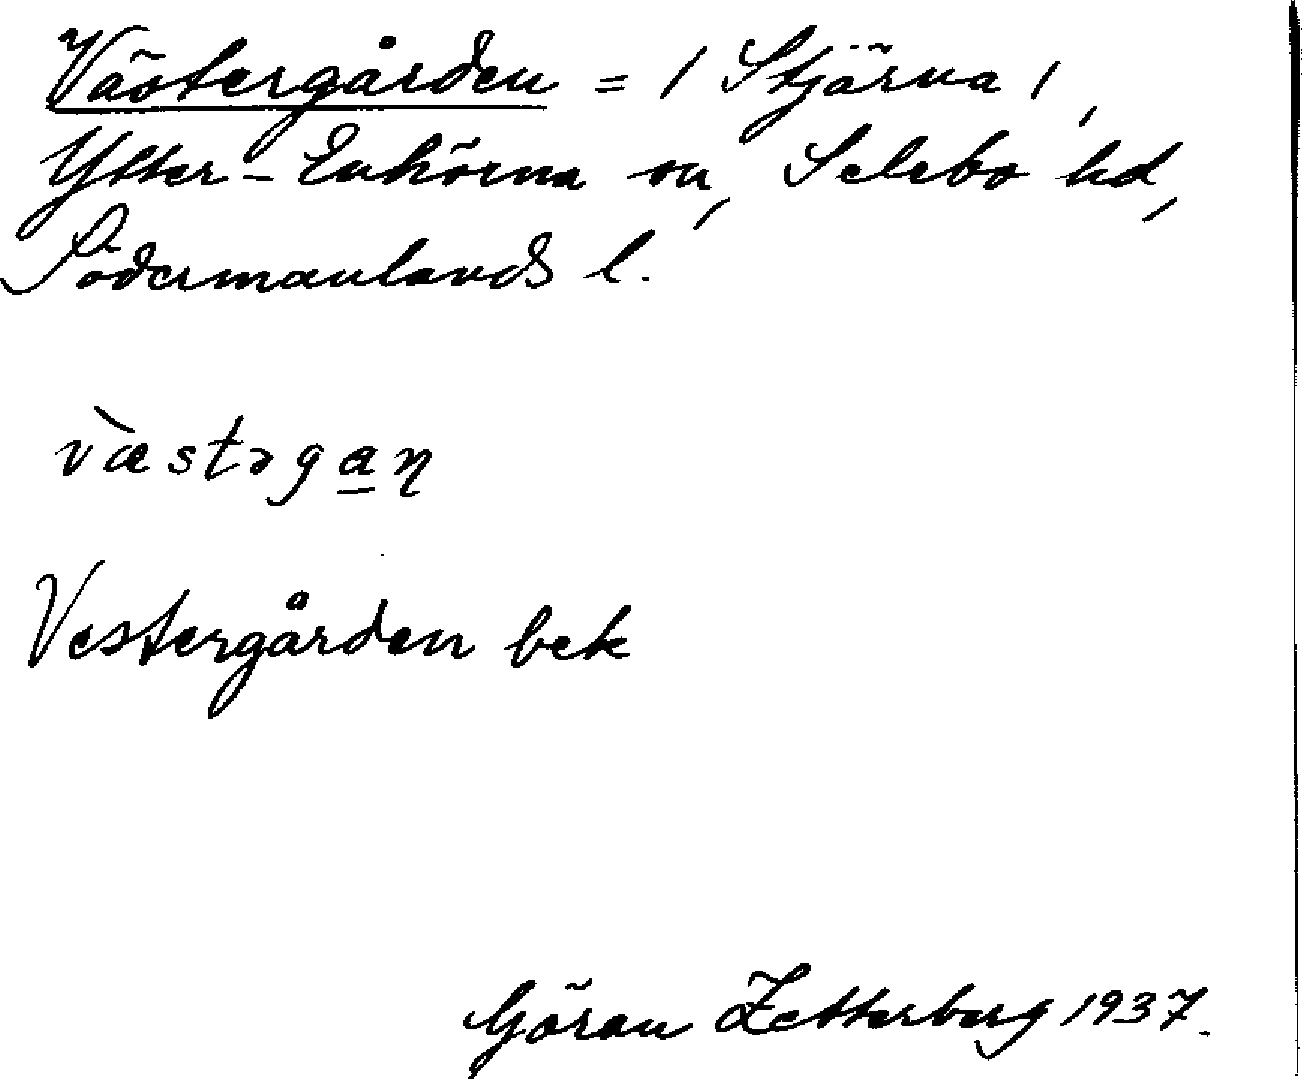 Västergården = / Stjärna /,
Ytter-Enhörna sn, Selebo hd,
Södermanlands l.
væ̀stəga̲ṇ
Vestergården bek
Göran Zetterberg 1937.